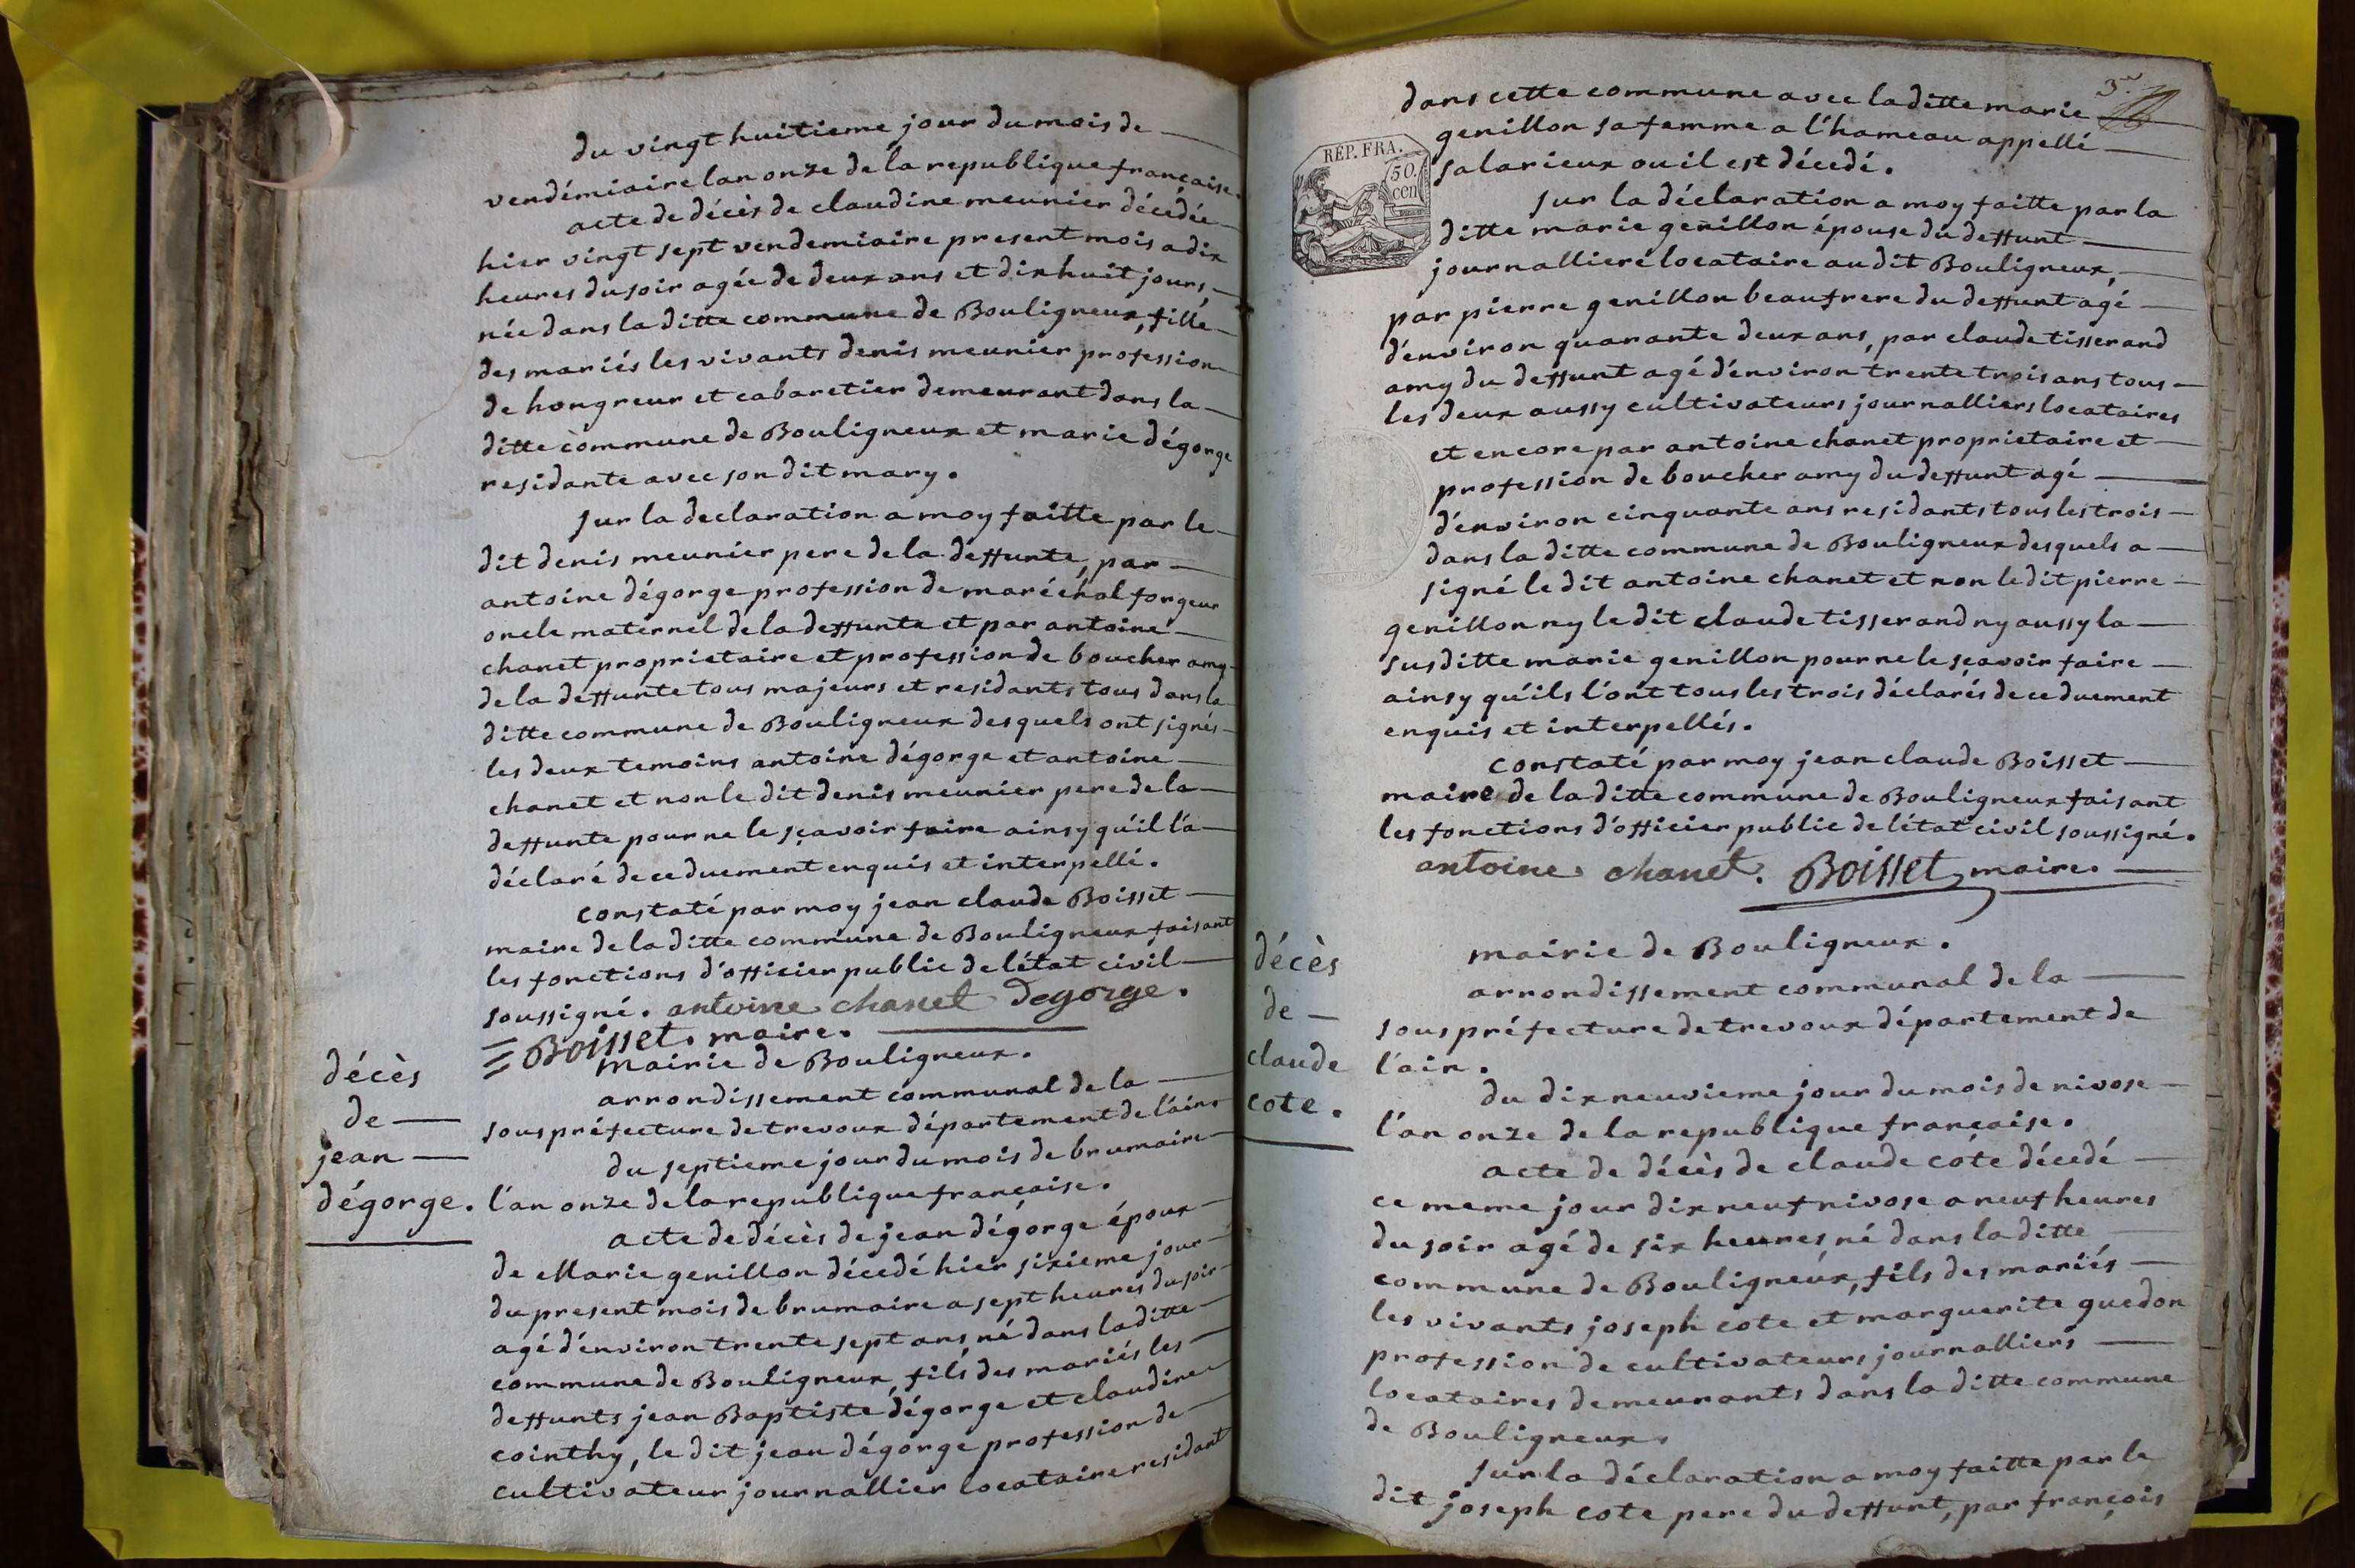 du vingt huitieme jour du mois de
vendémiaire lan onze de la republique francaise.
acte de décès de claudine meunier décedée
hier vingt sept vendemiaire present mois a dix
heures du soir agée de deux ans et dix huit jours,
née dans la ditte commune de Bouligneux, fille
des mariés les vivants denis meunier profession
de hongreur et cabaretier demeurant dans la
ditte commune de Bouligneux et marie dégorge
residante avec son dit mary.
sur la declaration a moy faitte par le
dit denis meunier pere de la deffunte, par
antoine dégorge profession de maréchal forgeur
oncle maternel de la deffunte et par antoine
chanet proprietaire et profession de boucher amy
de la deffunte tous majeurs et residants tous dans la
ditte commune de Bouligneux desquels ont signés
les deux temoins antoine dégorge et antoine
chanet et non le dit denis meunier pere de la
deffunte pour ne le sçavoir faire ainsy qu'il l'a
déclaré de ce duement enquis et interpellé.
constaté par moy jean claude Boisset
maire de la ditte commune de Bouligneux faisant
les fonctions d'officier public de l'état civil
soussigné. antoine chanet Degorge.
Boisset. maire.
mairie de Bouligneux.
arrondissement communal de la
sous préfecture de trevoux département de l'ain.
du septieme jour du mois de brumaire
l'an onze de la republique française.
acte de décès de jean dégorge époux
de Marie genillon décedé hier sixieme jour
du present mois de brumaire a sept heures du soir
agé d'environ trente sept ans, né dans la ditte
commune de Bouligneux, fils des mariés les
deffunts jean Baptiste dégorge et claudine
cointhy, le dit jean dégorge profession de
cultivateur journallier locataire residant
décès
de
jean
dégorge.
3e
dans cette commune avec la ditte marie
genillon sa femme a l'hameau appellé
salarieux ou il est décedé.
REP. FRA.
50.
cen
sur la déclaration a moy faitte par la
ditte marie genillon épouse du deffunt
journalliere locataire au dit Bouligneux,
par pierre genillon beaufrere du deffunt agé
d'environ quarante deux ans, par claude tisserand
amy du deffunt agé d'environ trente trois ans tous
les deux aussy cultivateurs journalliers locataires
et encore par antoine chanet proprietaire et
profession de boucher amy du deffunt agé
d'environ cinquante ans residants tous les trois
dans la ditte commune de Bouligneux desquels a
signé le dit antoine chanet et non le dit pierre
genillon ny le dit claude tisserand ny aussy la
susditte marie genillon pour ne le sçavoir faire
ainsy qu'ils l'ont tous les trois déclarés de ce duement
enquis et interpellés.
constaté par moy jean claude Boisset
maire de la ditte commune de Bouligneux faisant
les fonctions d'officier public de l'état civil soussigné.
antoine chanet. Boisset, maire.
décès
de
claude
cote.
mairie de Bouligneux.
arrondissement communal de la
sous préfecture de trevoux département de
l'ain.
du dix neuvieme jour du mois de nivose
l'an onze de la republique française.
acte de décès de claude cote décedé
ce meme jour dix neuf nivose a neuf heures
du soir agé de six heures, né dans la ditte
commune de Bouligneux, fils des mariés
les vivants joseph cote et marguerite guedon
profession de cultivateurs journalliers
locataires demeurants dans la ditte commune
de Bouligneux.
sur la déclaration a moy faitte par le
dit joseph cote pere du deffunt, par françois